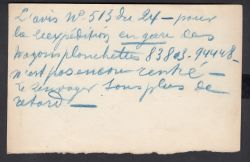 L'avis n° 513 du 24 — pour
la réexpédition en gare des
wagons planchettes 83803. 94448 —
n'est pas encore rentré —
le renvoyer sans plus de
retard. —